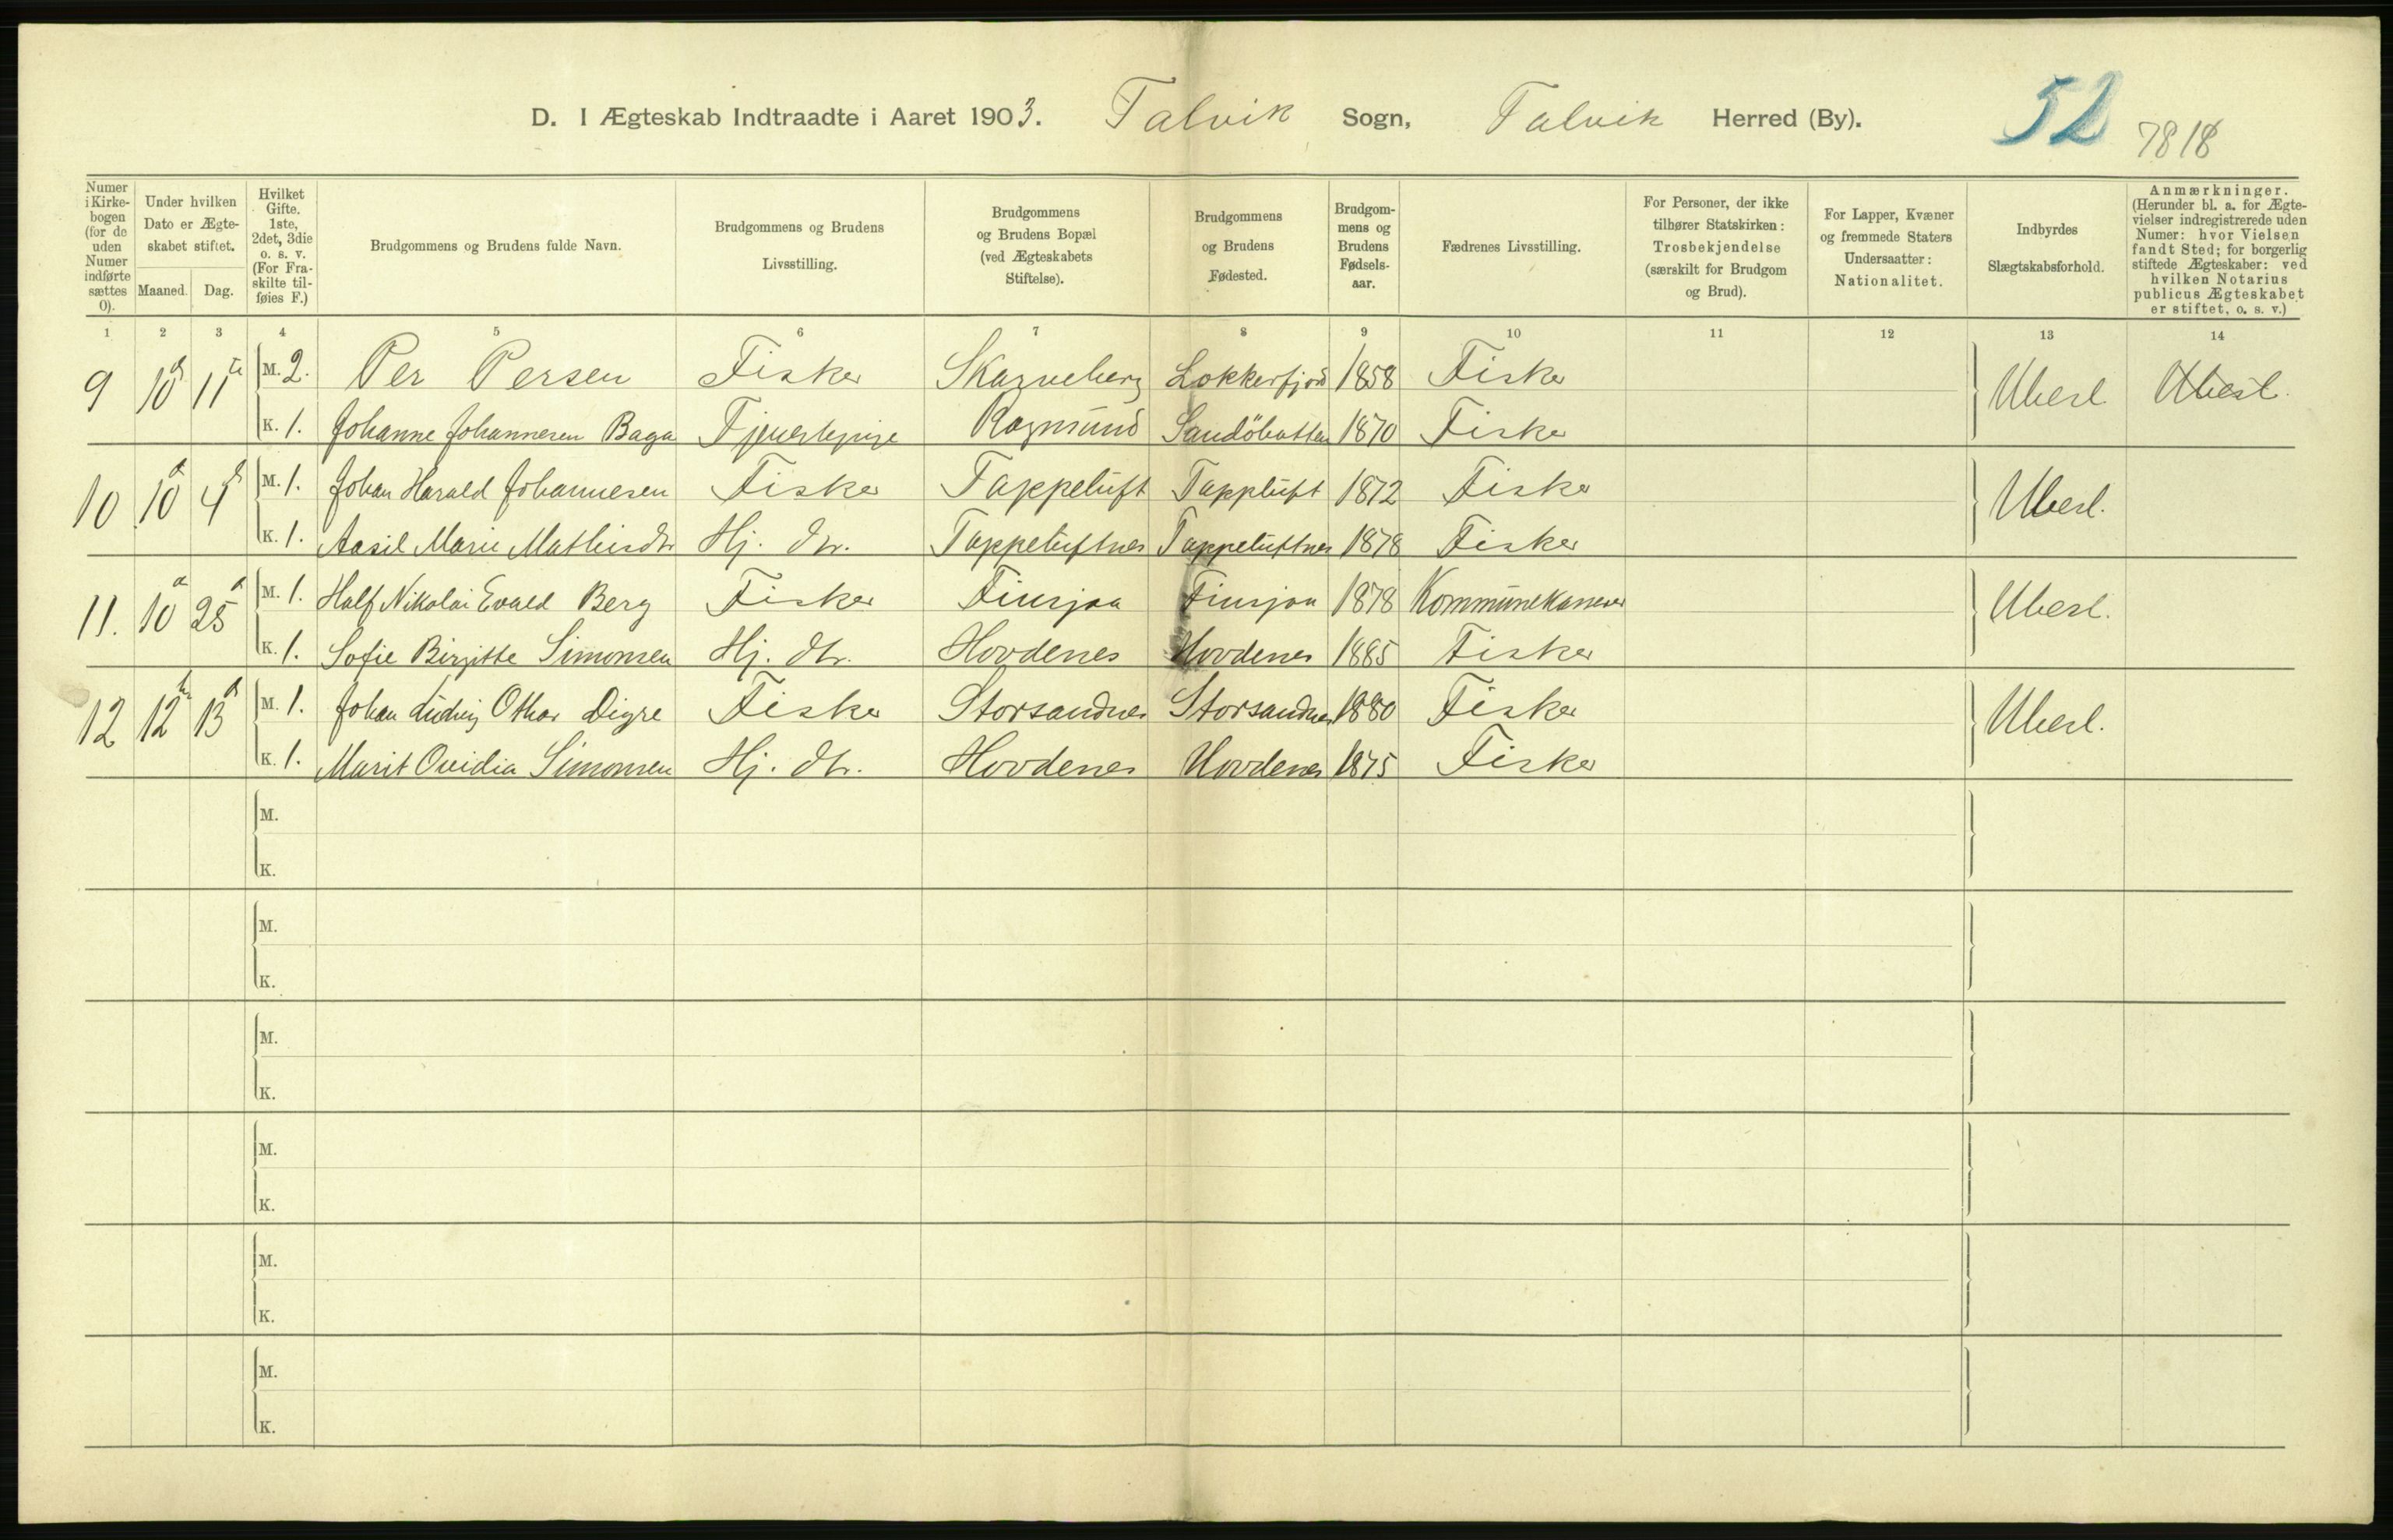 D. I Ægteskab Indtraadte i Aaret 1903. Talvik Sogn, Talvik Herred (By). 52
7818
Numer i Kirkebogen (for de uden Numer indførte sættes 0).
Under hvilken Dato er Ægteskabet stiftet. Maaned. Dag.
Hvilket Gifte. 1ste, 2det, 3die o. s. v. (For Fraskilte tilføies F.)
Brudgommens og Brudens fulde Navn.
Brudgommens og Brudens Livsstilling.
Brudgommens og Brudens Bopæl (ved Ægteskabets Stiftelse).
Brudgommens og Brudens Fødested.
Brudgommens og Brudens Fødselsaar.
Fædrenes Livsstilling.
For Personer, der ikke tilhører Statskirken: Trosbekjendelse (særskilt for Brudgom og Brud).
For Lapper, Kvæner og fremmede Staters Undersaatter: Nationalitet.
Indbyrdes Slægtskabsforhold.
Anmærkninger. (Herunder bl. a. for Ægtevielser indregistrerede uden Numer: hvor Vielsen fandt Sted; for borgerlig stiftede Ægteskaber: ved hvilken Notarius publicus Ægteskabet er stiftet, o. s. v.)
1 2 3 4 5 6 7 8 9 10 11 12 13 14
9 10 11 M. 2. Per Persen Fisker Lokkerfjord 1858 Fisker Ubesl Ubesl.
K. 1. Johanne Johannesen Baga Tjenestepige Rognsund 1870 Fisker
10 10 4 M. 1. Johan Harald Johannesen Fisker Tappeluft Tappluft 1872 Fisker Ubesl.
K. 1. Aasil Marie Mathisdtr Hj. dtr. Tappeluftnes Tappeluftnes 1878 Fisker
11. 10 25 M. 1. Half Nikolai Evald Berg Fisker Finsjaa Finsjaa 1878 Kommunekasserer Ubesl.
K. 1. Sofie Birgitte Simonsen Hj. dtr. Hovdenes Hovdenes 1885 Fisker
12 12 13 M. 1. Johan Ludvig Othar Digre Fisker Storsandnes Storsandnes 1880 Fisker Ubesl.
K. 1. Marit Ovidia Simonsen Hj. dtr. Hovdenes Hovdenes 1875 Fisker
M.
K.
M.
K.
M.
K.
M.
K.
M.
K.
M.
K.